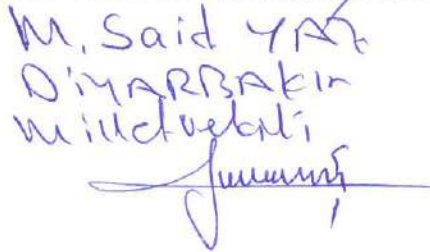 M. Said YAZ
DİYARBAKIr
Milletvekili